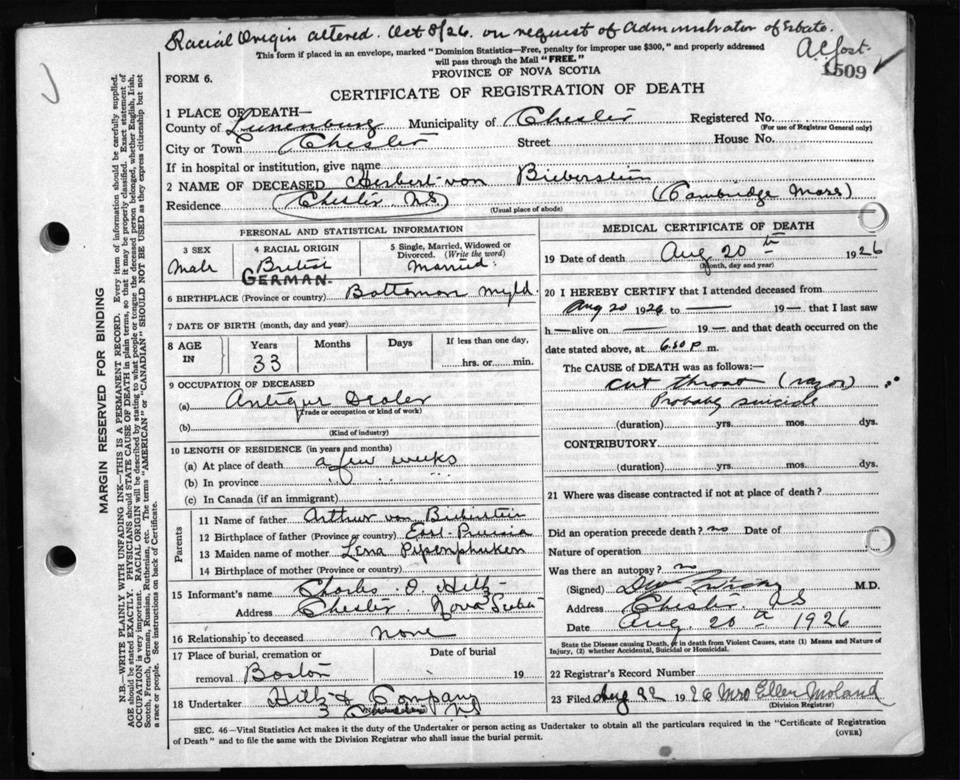 Racial Origin altered. Oct 8/26. on request of Administrator of Estate.
A.C. Jost
This form if placed in an envelope, marked "Dominion Statistics—Free, penalty for improper use $300," and properly addressed
will pass through the Mail "FREE."
1509
FORM 6.
PROVINCE OF NOVA SCOTIA
CERTIFICATE OF REGISTRATION OF DEATH
1 PLACE OF DEATH—
County of Lunenburg Municipality of Chester Registered No.
(For use of Registrar General only)
City or Town Chester Street House No.
If in hospital or institution, give name
2 NAME OF DECEASED Herbert von Bieberstein
Residence (Chester NS) (Cambridge Mass)
(Usual place of abode)
PERSONAL AND STATISTICAL INFORMATION
3 SEX
Male
4 RACIAL ORIGIN
British
GERMAN.
5 Single, Married, Widowed or
Divorced. (Write the word)
Married.
6 BIRTHPLACE (Province or country) Baltomon Myld.
7 DATE OF BIRTH (month, day and year)
8 AGE
IN
Years
33
Months
Days
If less than one day,
hrs. or min.
9 OCCUPATION OF DECEASED
(a) Antique Dealer
(Trade or occupation or kind of work)
(b)
(Kind of industry)
10 LENGTH OF RESIDENCE (in years and months)
(a) At place of death a few weeks
(b) In province " " "
(c) In Canada (if an immigrant)
Parents
11 Name of father Arthur von Bieberstein
12 Birthplace of father (Province or country) East Prussia
13 Maiden name of mother Lena
14 Birthplace of mother (Province or country)
15 Informant's name Charles O. Hilts
Address Chester Nova Scotia
16 Relationship to deceased none
17 Place of burial, cremation or
removal Boston
Date of burial
19
18 Undertaker Hilts & Company
Chester NS
MEDICAL CERTIFICATE OF DEATH
19 Date of death Aug 20th 1926
(Month, day and year)
20 I HEREBY CERTIFY that I attended deceased from
Aug 20 1926 to — 19— that I last saw
h — alive on — 19— and that death occurred on
date stated above, at 6.30 P m.
The CAUSE of DEATH was as follows:—
Cut throat (razor)
Probably suicide
(duration) yrs. mos. dys.
CONTRIBUTORY
(duration) yrs. mos. dys.
21 Where was disease contracted if not at place of death?
Did an operation precede death? no Date of
Nature of operation
Was there an autopsy? no
(Signed) M.D.
Address Chester. NS
Date Aug 20th 1926
State the Disease causing Death, or in death from Violent Causes, state (1) Means and Nature of
Injury, (2) whether Accidental, Suicidal or Homicidal.
22 Registrar's Record Number
23 Filed Aug 22 1926 Mrs Ellen Moland
(Division Registrar)
SEC. 46—Vital Statistics Act makes it the duty of the Undertaker or person acting as Undertaker to obtain all the particulars required in the "Certificate of Registration
of Death" and to file the same with the Division Registrar who shall issue the burial permit.
(OVER)
MARGIN RESERVED FOR BINDING
N.B.—WRITE PLAINLY WITH UNFADING INK—THIS IS A PERMANENT RECORD. Every item of information should be carefully supplied.
AGE should be stated EXACTLY. PHYSICIANS should STATE CAUSE OF DEATH in plain terms, so that it may be properly classified. Exact statement of
OCCUPATION is very important. RACIAL ORIGIN will be described by stating to what people or tongue the deceased person belonged, whether English, Irish,
Scotch, French, German, Russian, Ruthenian, etc. The terms "AMERICAN" or "CANADIAN" SHOULD NOT BE USED as they express citizenship but not
a race or people. See instructions on back of Certificate.